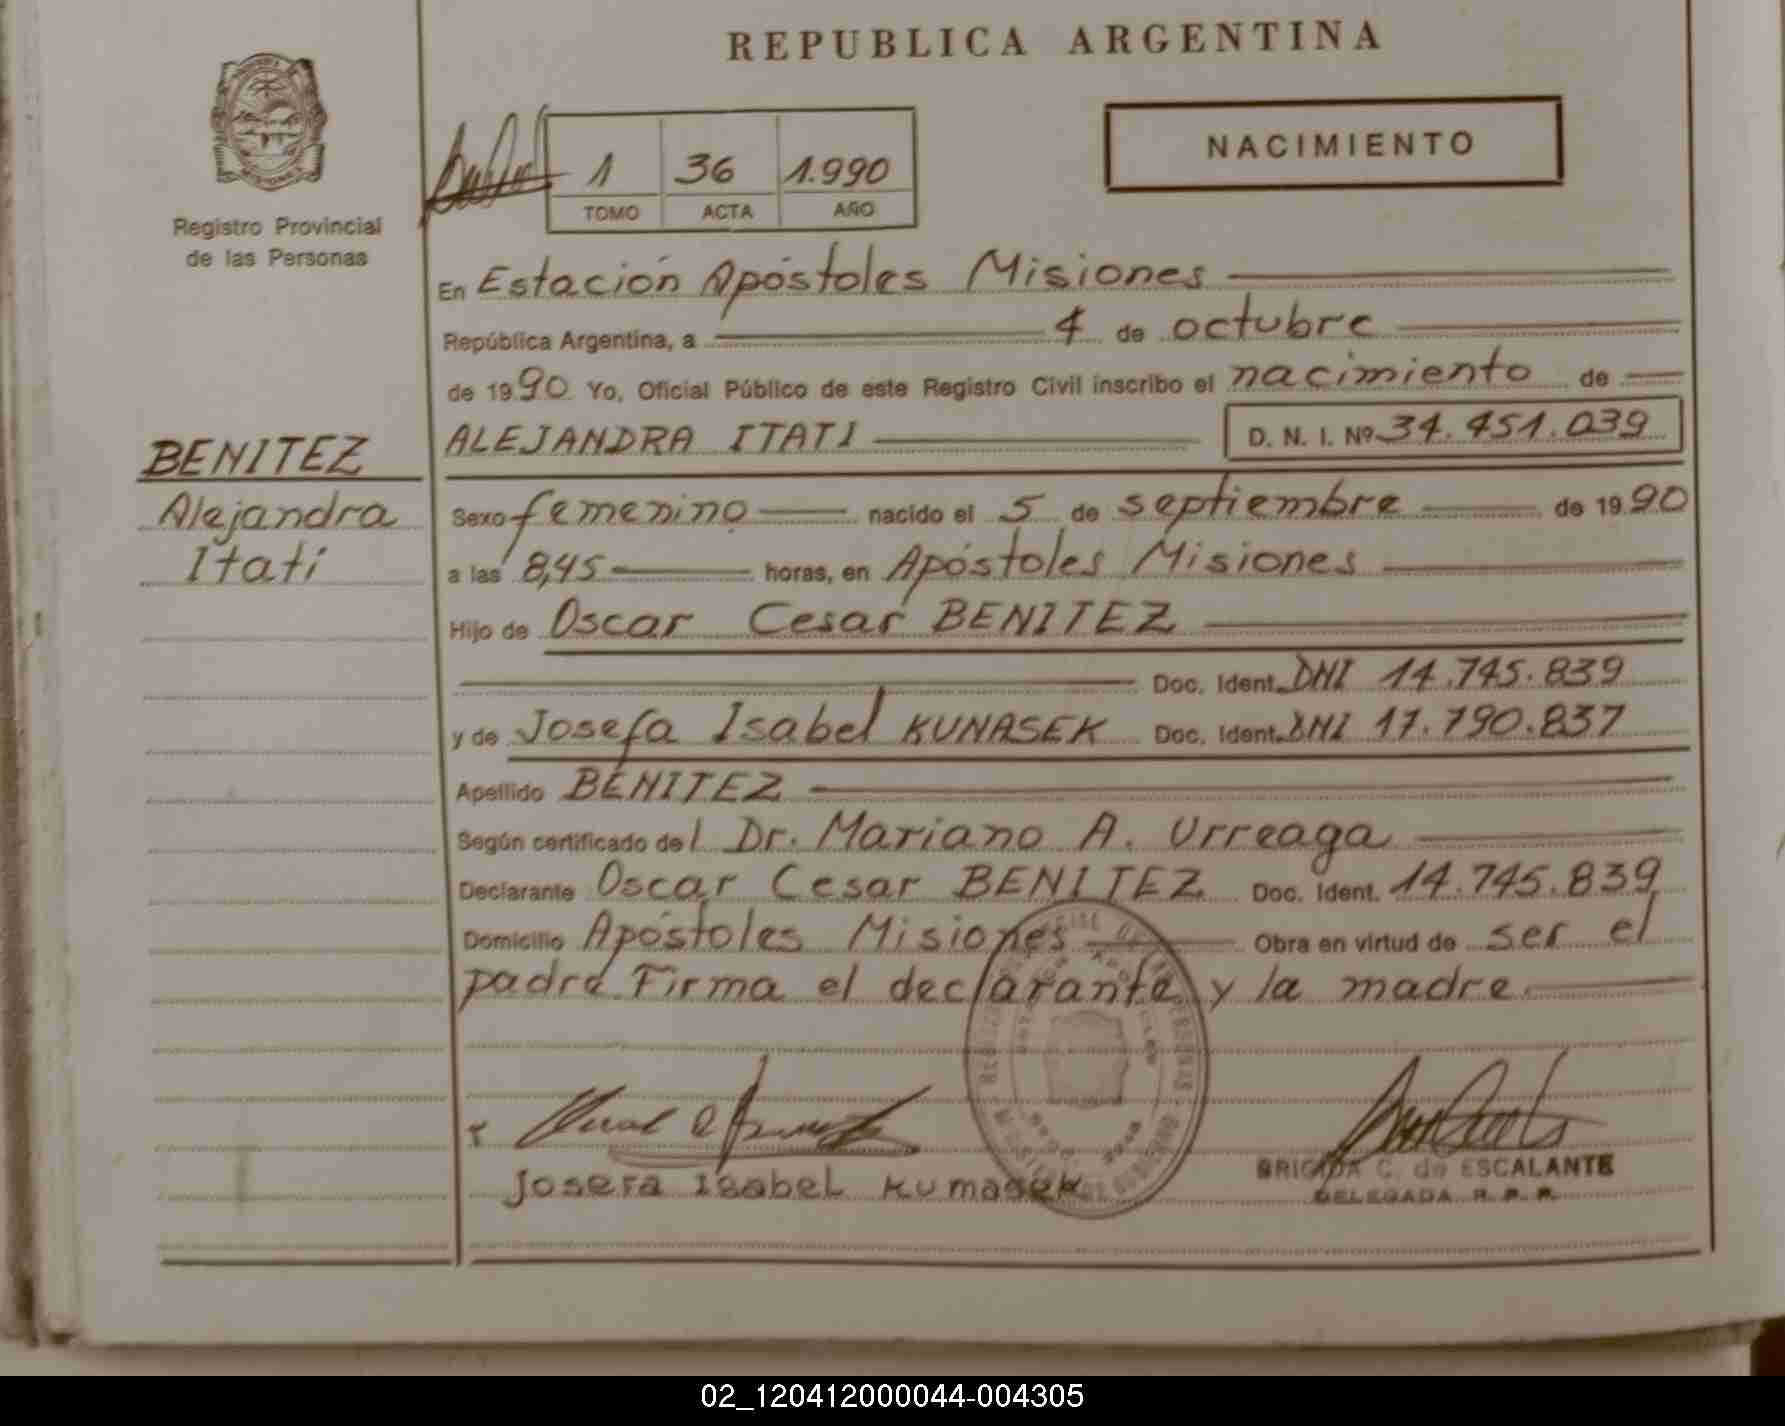 REPUBLICA ARGENTINA
NACIMIENTO
1 36 1.990
TOMO ACTA AÑO
Registro Provincial
de las Personas
En Estación Apóstoles Misiones
República Argentina, a 4 de octubre
de 1990 Yo, Oficial Público de este Registro Civil inscribo el nacimiento de
ALEJANDRA ITATI D. N. I. Nº 34.451.039
BENITEZ
Alejandra
Itati
Sexo femenino nacido el 5 de septiembre de 1990
a las 8,45 horas, en Apóstoles Misiones
Hijo de Oscar Cesar BENITEZ
Doc. Ident. DNI 14.745.839
y de Josefa Isabel KUNASEK Doc. Ident. DNI 17.790.837
Apellido BENITEZ
Según certificado del Dr. Mariano A. Urreaga
Declarante Oscar Cesar BENITEZ Doc. Ident. 14.745.839
Domicilio Apóstoles Misiones Obra en virtud de ser el
padre. Firma el declarante y la madre.
Josefa Isabel Kumasek
BRIGIDA C. de ESCALANTE
DELEGADA R. P. P.
02_120412000044-004305